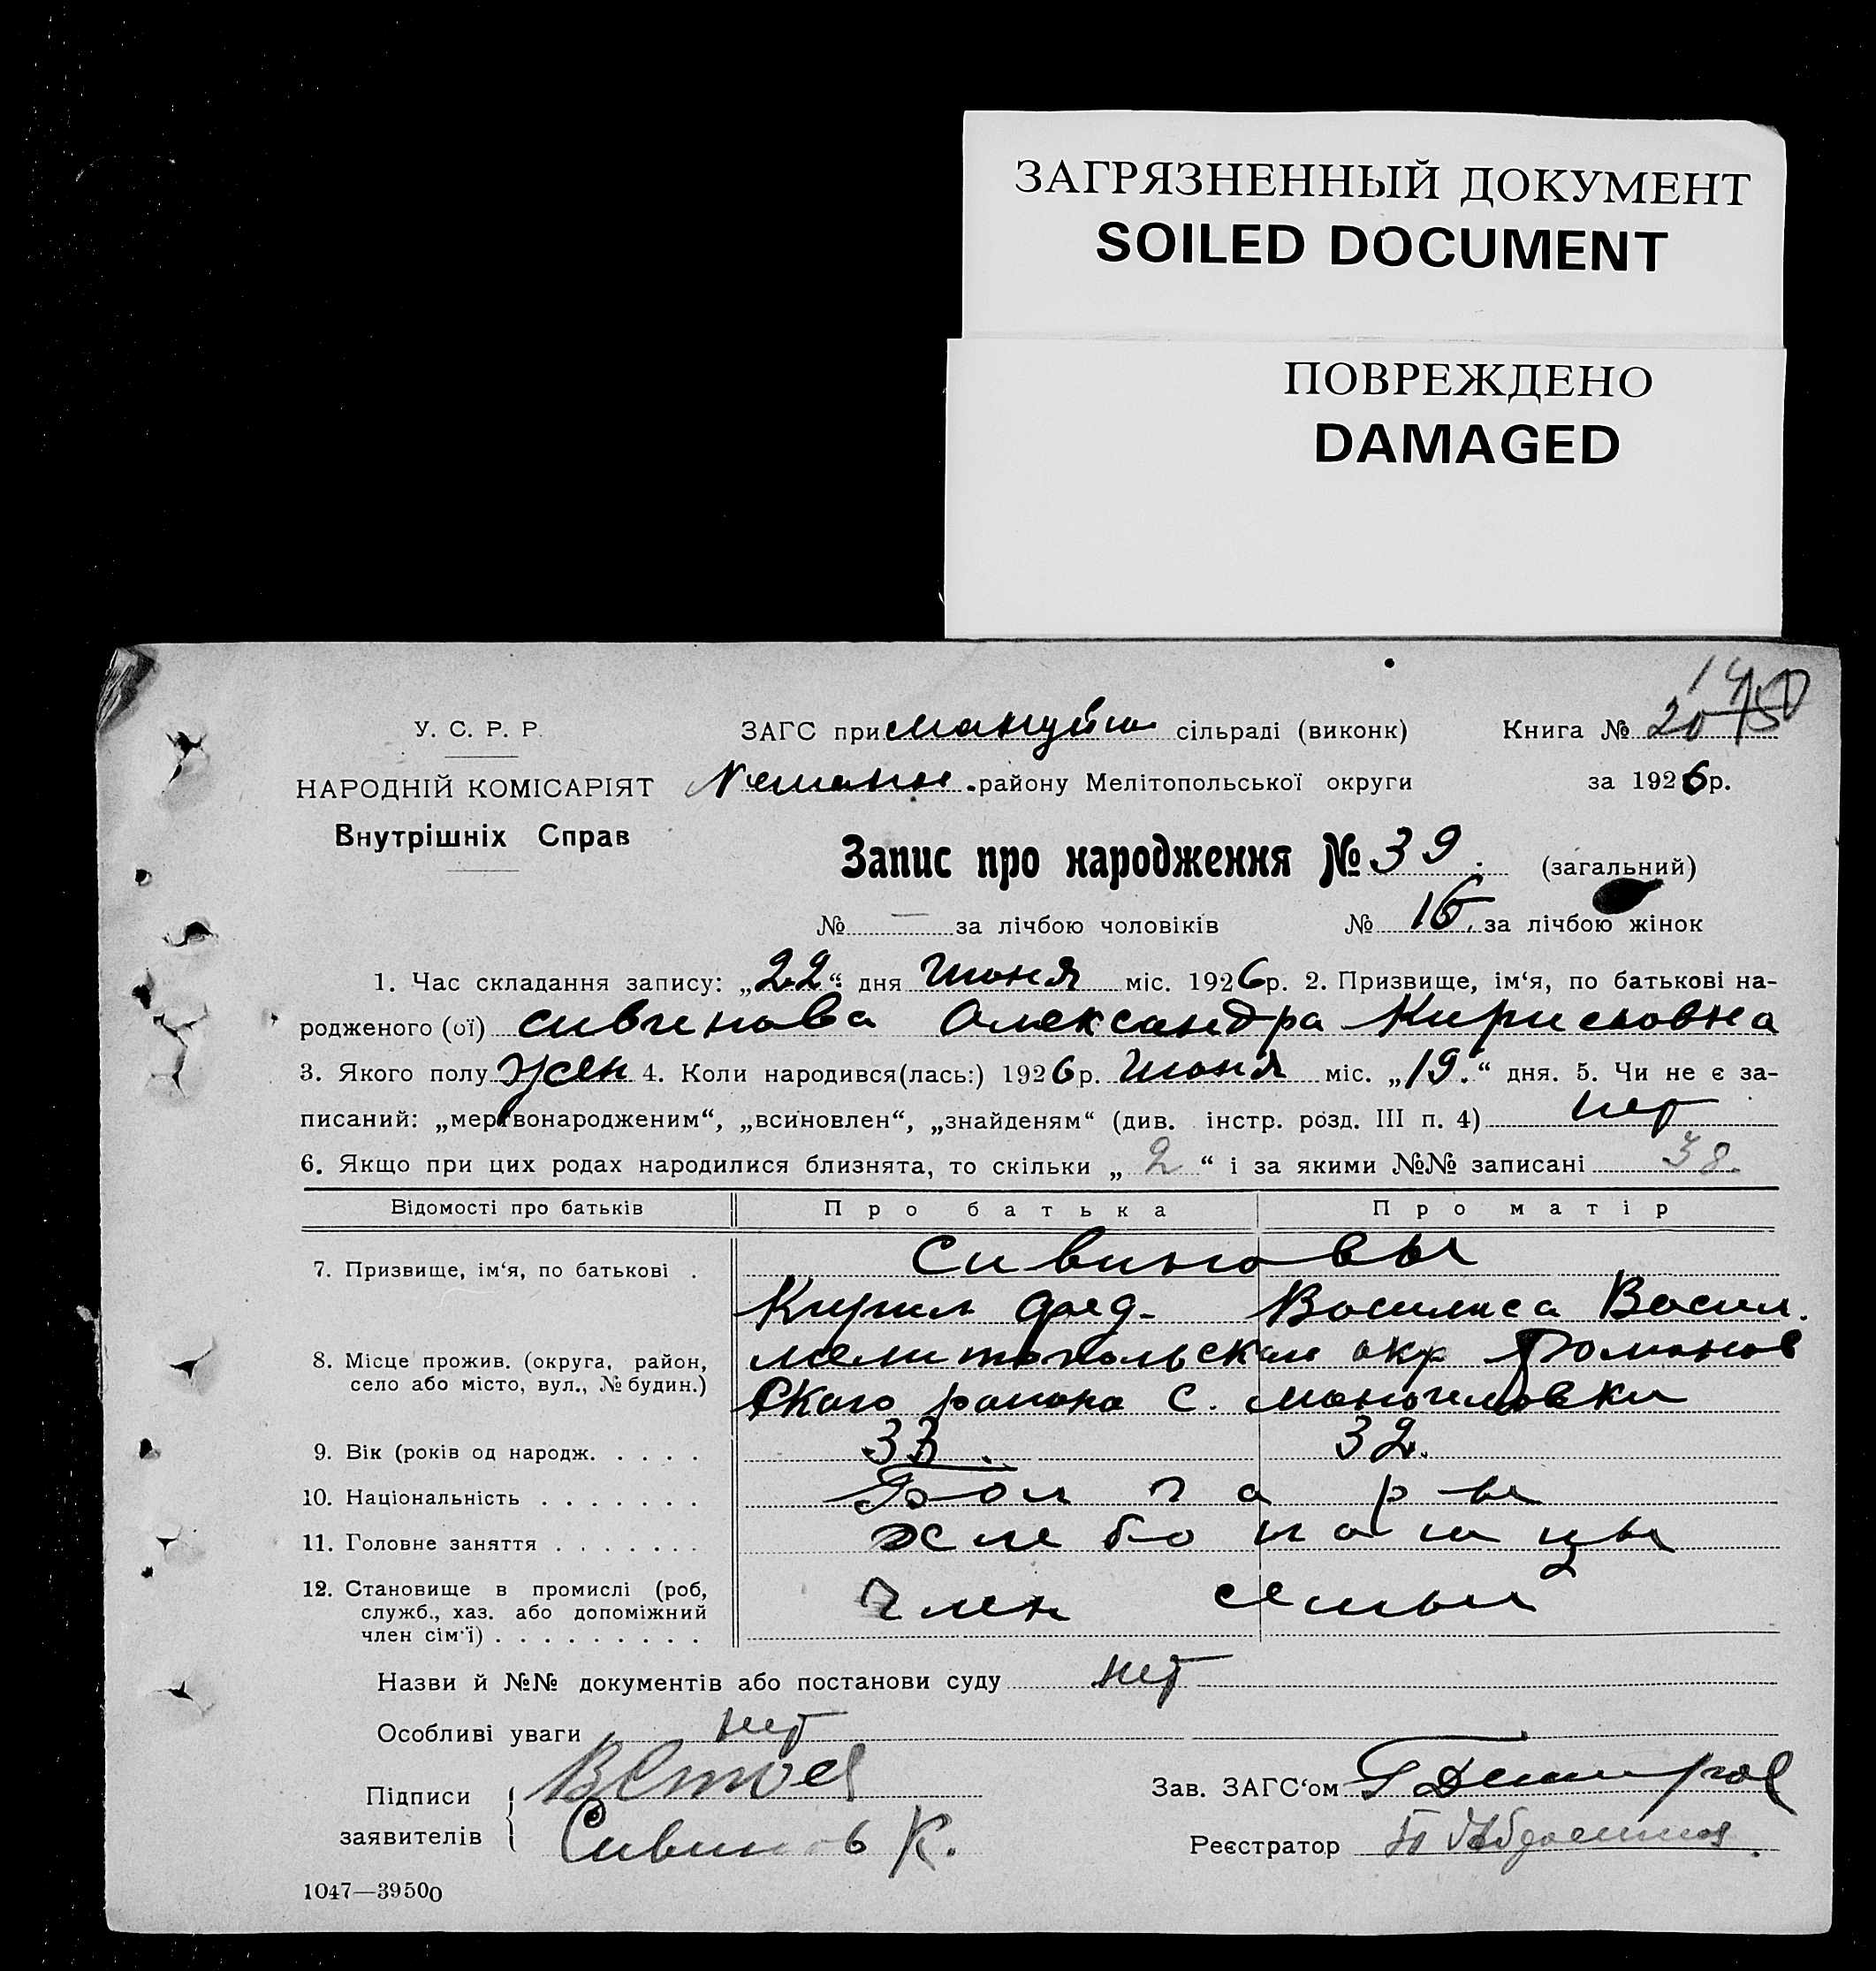 ЗАГРЯЗНЕННЫЙ ДОКУМЕНТ
SOILED DOCUMENT
ПОВРЕЖДЕНО
DAMAGED
У. С. Р. Р.
НАРОДНІЙ КОМІСАРІЯТ
Внутрішніх Справ
ЗАГС при сільраді (виконк)
району Мелітопольської округи
Книга № 20
за 1926р.
Запис про народження № 39. (загальний)
№ — за лічбою чоловіків № 16. за лічбою жінок
1. Час складання запису: „22“ дня Июня міс. 1926р. 2. Призвище, ім‘я, по батькові на-
родженого (ої) Александра Кириловна
3. Якого полу жен 4. Коли народився(лась:) 1926р. Июня міс. „19.“ дня. 5. Чи не є за-
писаний: „мертвонародженим“, „всиновлен“, „знайденям“ (див. інстр. розд. III п. 4) нет
6. Якщо при цих родах народилися близнята, то скільки „2“ і за якими №№ записані 38.
Відомості про батьків Про батька Про матір
7. Призвище, ім‘я, по батькові . Сивиновы
Кирил Фед. Василиса Васил.
8. Місце прожив. (округа, район,
село або місто, вул., № будин.)
Мелитопольская окр Романов
ского района с.
9. Вік (років од народж. . . . . 33. 32.
10. Національність . . . . . . . Болгары
11. Головне заняття . . . . . . . хлебопашцы
12. Становище в промислі (роб,
служб., хаз. або допоміжний
член сім‘ї) . . . . . . . . .
член семьи
Назви й №№ документів або постанови суду нет
Особливі уваги нет
Підписи
заявителів
Сивинов К.
Зав. ЗАГС‘ом
Реєстратор
1047—39500